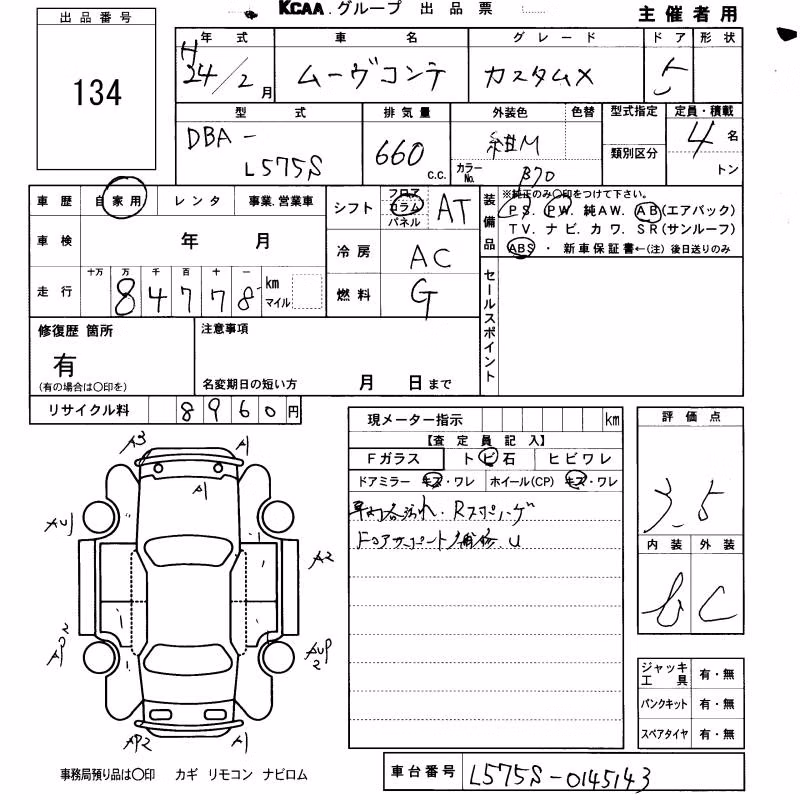 KCAA.グループ 出品票
主催者用
出品番号
134
年式 車名 グレード ドア 形状
H24/2月 ムーヴコンテ カスタムX 5
型式 排気量 外装色 色替 型式指定 定員・積載
DBA-
L575S
660 c.c.
紺M
カラーNo. B70
類別区分
4名
トン
車歴 自家用 レンタ 事業.営業車
車検 年 月
走行 十万 万 千 百 十 一
8 4 7 7 8 km マイル
シフト フロア コラム パネル AT
冷房 AC
燃料 G
装備品 ※純正のみ〇印をつけて下さい。
PS. PW. 純AW. AB(エアバック)
TV. ナビ. カワ. SR(サンルーフ)
ABS ・ 新車保証書←(注) 後日送りのみ
セールスポイント
修復歴 箇所
有
(有の場合は〇印を)
注意事項
名変期日の短い方 月 日まで
リサイクル料 8960円
現メーター指示 km
【査定員記入】
Fガラス トビ石 ヒビワレ
ドアミラー キズ・ワレ ホイール(CP) キズ・ワレ
車内各汚れ. Rスポイラーゲ
FコアサポートU
評価点
3.5
内装 外装
b C
A3 A1
A1
AU1
A2
AP2
AUP2
AP2 A1
ジャッキ工具 有・無
パンクキット 有・無
スペアタイヤ 有・無
事務局預り品は〇印 カギ リモコン ナビロム
車台番号 L575S-0145143